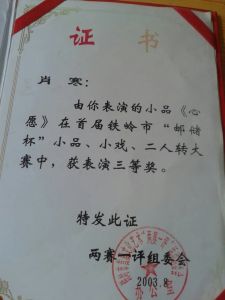 证 书
肖 寒：
由你表演的小品《心
愿》在首届铁岭市“邮储
杯”小品、小戏、二人转大
赛中，获表演三等奖。
特发此证
两赛一评组委会
2003.8
办公室